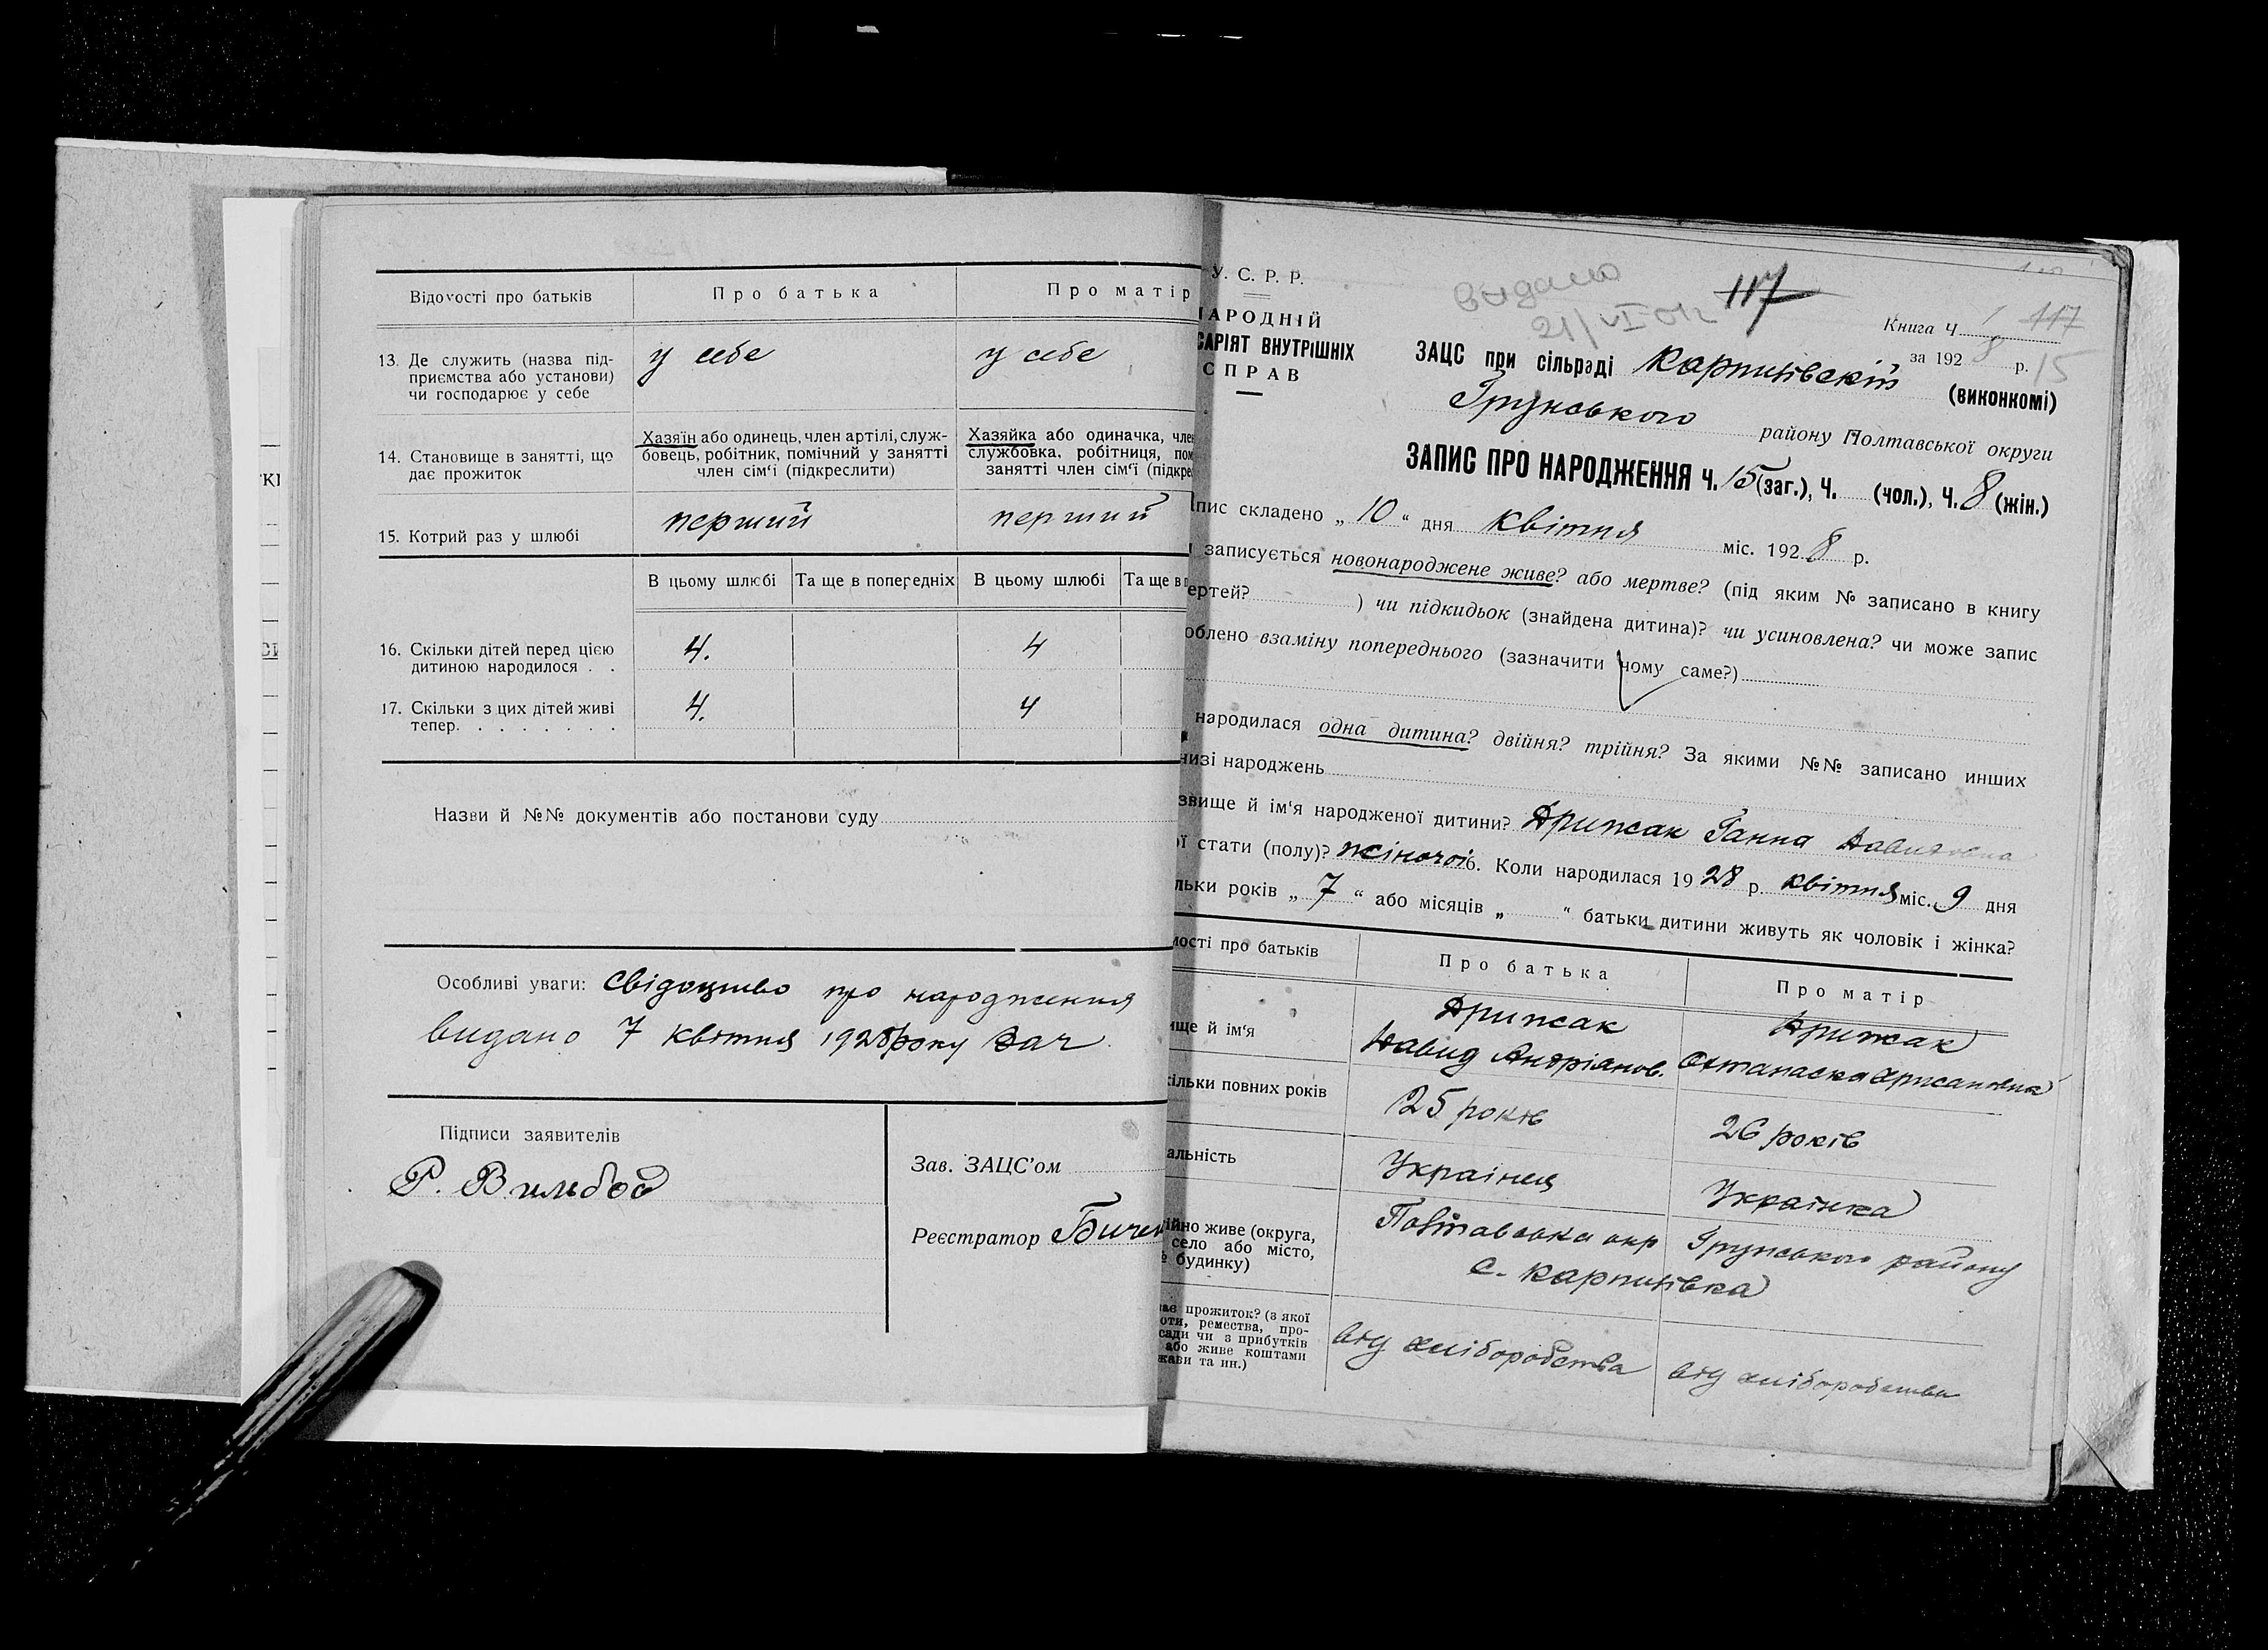 Відомості про батьків
Про батька
Про матір
13. Де служить (назва під-
приємства або установи)
чи господарює у себе
у себе
у себе
14. Становище в занятті, що
дає прожиток
Хазяїн або одинець, член артілі, служ-
бовець, робітник, помічний у занятті
член сім'ї (підкреслити)
Хазяйка або одиначка, член
службовка, робітниця, пом
занятті член сім'ї (підкре
15. Котрий раз у шлюбі
перший
перший
В цьому шлюбі
Та ще в попередніх
В цьому шлюбі
Та ще в п
16. Скільки дітей перед цією
дитиною народилося . .
4.
4
17. Скільки з цих дітей живі
тепер. . . . . . . .
4.
4
Назви й №№ документів або постанови суду
Особливі уваги: Свідоцтво про народження
видано 7 квітня 1928 року
Підписи заявителів
Р. Вильбой
Зав. ЗАЦС'ом
Реєстратор Бичен
У. С. Р. Р.
АРОДНІЙ
САРІЯТ ВНУТРІШНІХ
СПРАВ
видано
21/VI
117
Книга Ч. 1 117
за 1928 р. 15
ЗАЦС при сільраді Карпилівскій (виконкомі)
Грунського району Полтавської округи
ЗАПИС ПРО НАРОДЖЕННЯ Ч. 15 (заг.), Ч. (чол.), Ч. 8 (жін.)
пис складено „ 10 “ дня квітня міс. 1928 р.
записується новонароджене живе? або мертве? (під яким № записано в книгу
ертей? ) чи підкидьок (знайдена дитина)? чи усиновлена? чи може запис
облено взаміну попереднього (зазначити чому саме?)
народилася одна дитина? двійня? трійня? За якими №№ записано инших
низі народжень
звище й ім'я народженої дитини? Дрижак Ганна Давидовна
ї стати (полу)? жіночої 6. Коли народилася 1928 р. квітня міс. 9 дня
льки років „ 7 “ або місяців „ “ батьки дитини живуть як чоловік і жінка?
мості про батьків
Про батька
Про матір
ище й ім'я
Дрижак
Давид Андріянов.
Дрижак
кільки повних років
25 років
26 років
альність
Українця
Українка
ійно живе (округа,
село або місто,
№ будинку)
Полтавська окр Грунського району
с. Карпилівка
ає прожиток? (з якої
оти, ремества, про-
сади чи з прибутків
або живе коштами
жави та ин.)
від хліборобства
від хліборобства